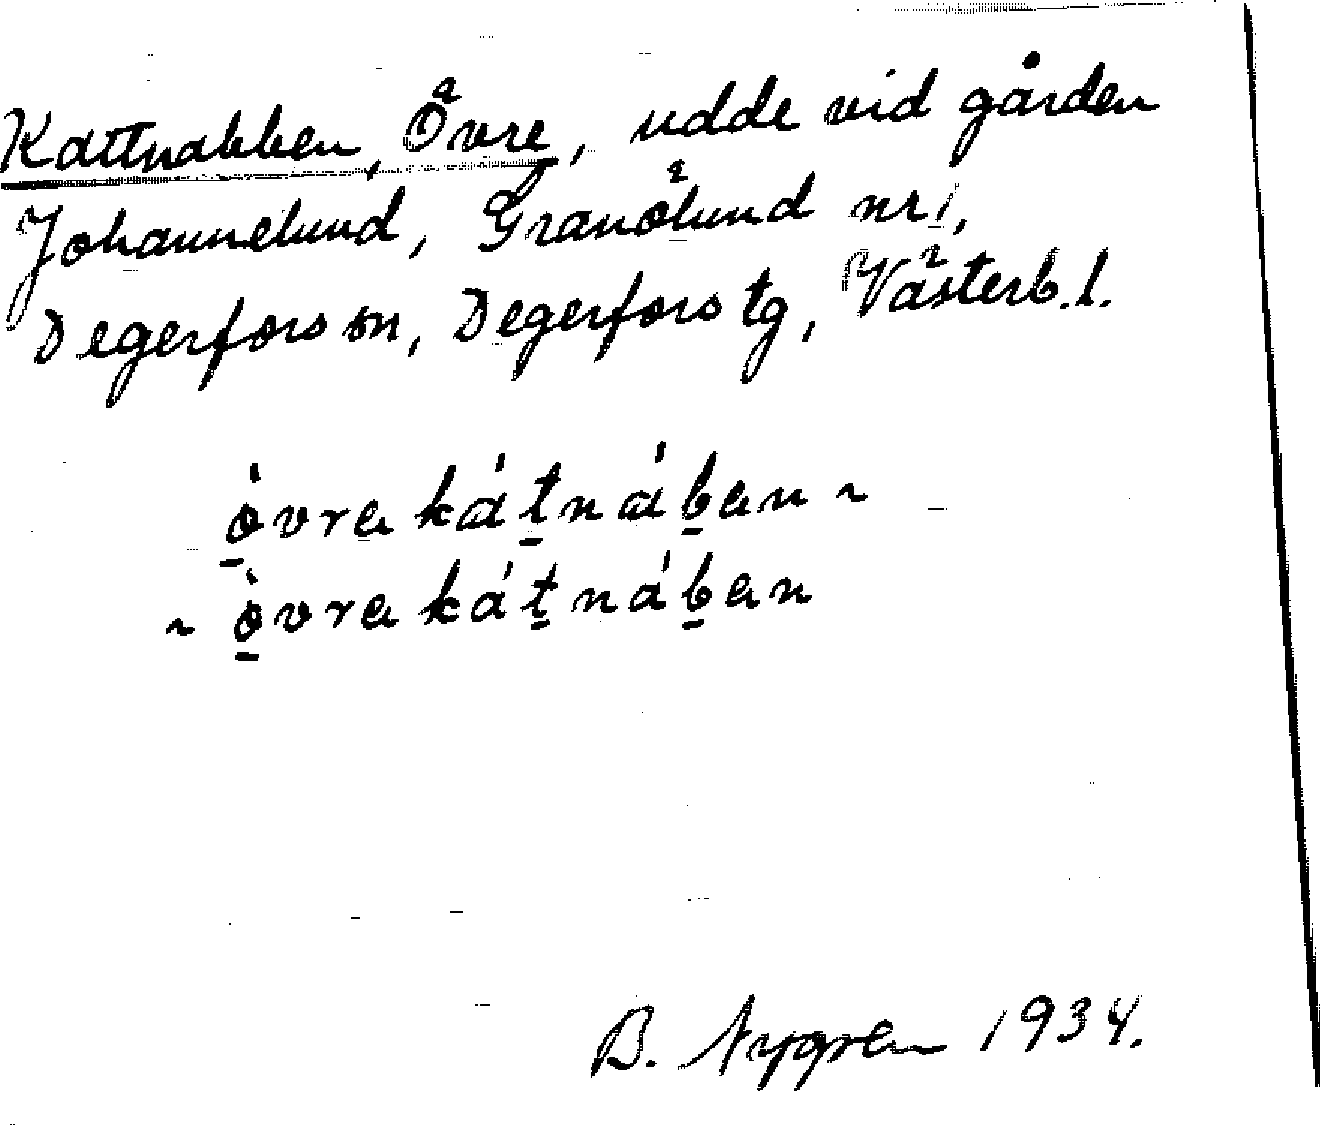 Kattnabben, Övre, udde vid gården
Johannelund, Granölund nr 1,
Degerfors sn, Degerfors tg, Västerb. l.
òvra kátnában ~
~ òvra kátnában
B. Nygren 1934.